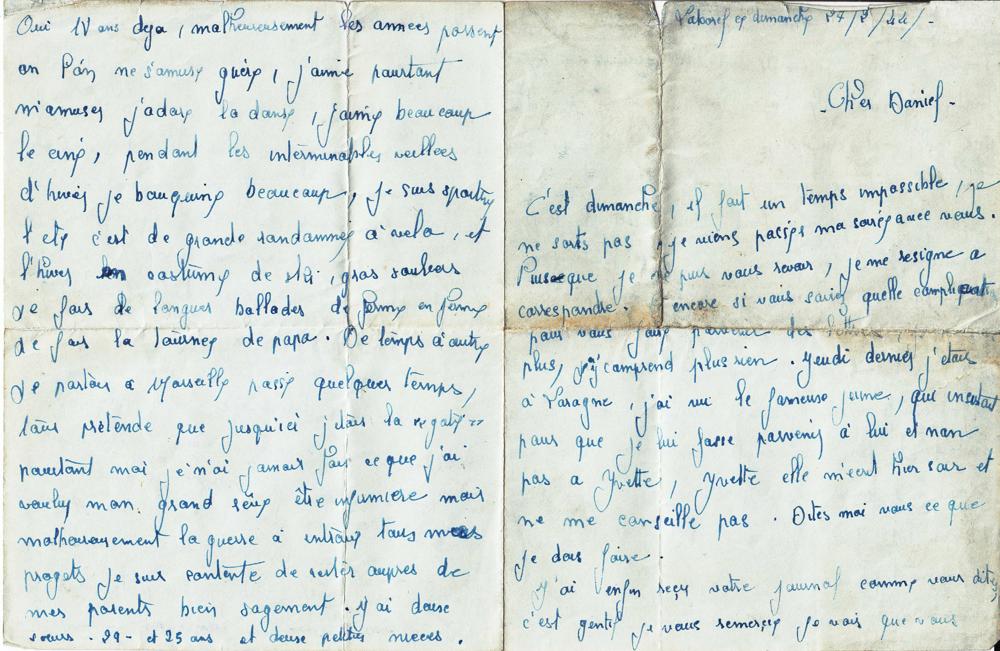 Laborel dimanche 27/2/44/-
- Cher Daniel -
C'est dimanche, il fait un temps impossible, je
ne sorts pas, je viens passer ma soirée avec vous.
Puisque je ne puis vous revoir, je me resigne a
correspondre. encore si vous saviez quelle
pour vous faire parvenir des lettres
plus, j'y comprend plus rien. Jeudi dernier j'étais
à Laragne, j'ai vu le fameuse jeune, qui insistait
pour que je lui fasse parvenir à lui et non
pas a Yvette, Yvette elle m'écrit hier soir et
ne me conseille pas. Dites moi vous ce que
je dois faire.
J'ai enfin reçu votre journal comme vous dites
c'est gentil je vous remercie je vois que vous
Oui 10 ans deja, malheureusement les annees passent
on Pón ne s'amuse guère, j'aime pourtant
m'amuser j'adore la danse, j'aime beaucoup
le ciné, pendant les interminables veillees
d'hiver je bouquine beaucoup, je suis sportive
l'eté c'est de grande randonnée à velo, et
l'hiver en costume de ski, gros souliers
je fais de longues ballades de ferme en ferme
je fais la tournée de papa. De temps à autre
je partais a Marseille passé quelques temps,
tous prétende que jusqu'ici j'étais la
pourtant moi je n'ai jamais fais ce que j'ai
voulu mon grand rêve être infirmiere mais
malheureusement la guerre à entravé tous mes
progets je suis contente de rester aupres de
mes parents bien sagement. J'ai deux
soeurs. 29- et 25 ans et deux petites nieces.